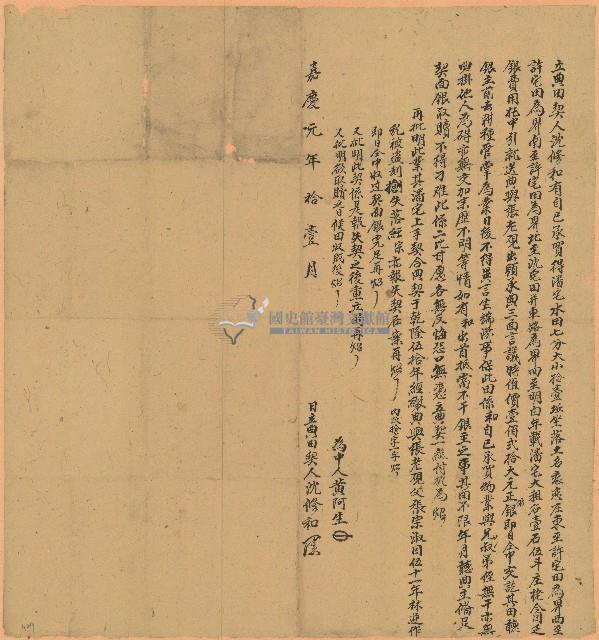 立典田契人沈修和有自己承買得潘宅水田乙分大小拾壹坵坐落土名
庄東至許宅田為界西至
許宅田為界南至許宅田為界北至沈宅田并車路為界四至明白年載潘宅大租谷壹石伍斗庄
銀費用托中引就送典與張老現出頭承典三面言議時值價壹佰弍拾大元正銀即日仝中交訖其田
銀主前去耕種管掌為業日後不得異言生端滋事保此田係和自己承買物業與兄叔弟侄無干亦無
掛他人為碍亦無交加來歷不明等情如有和出首抵當不干銀主之事其田不限年月聽典主備足
契面銀取贖不得刁難此係二比甘愿各無反悔恐口無憑立典契一紙付執為炤
再批明此業其潘宅上手契合四契于乾隆伍拾年經繳典與張老現父張宗淑因伍十一年林逆作
亂被盜刦失落經宗亦報失契在案再炤
即日仝中收過契面銀完足再炤
又批明此契係是報失契之後重立再炤
又批明欲取贖之日候田收成後炤
為中人黃阿生
嘉慶元年拾壹月 日立典田契人沈修和
國史館臺灣文獻館
TAIWAN HISTORICA